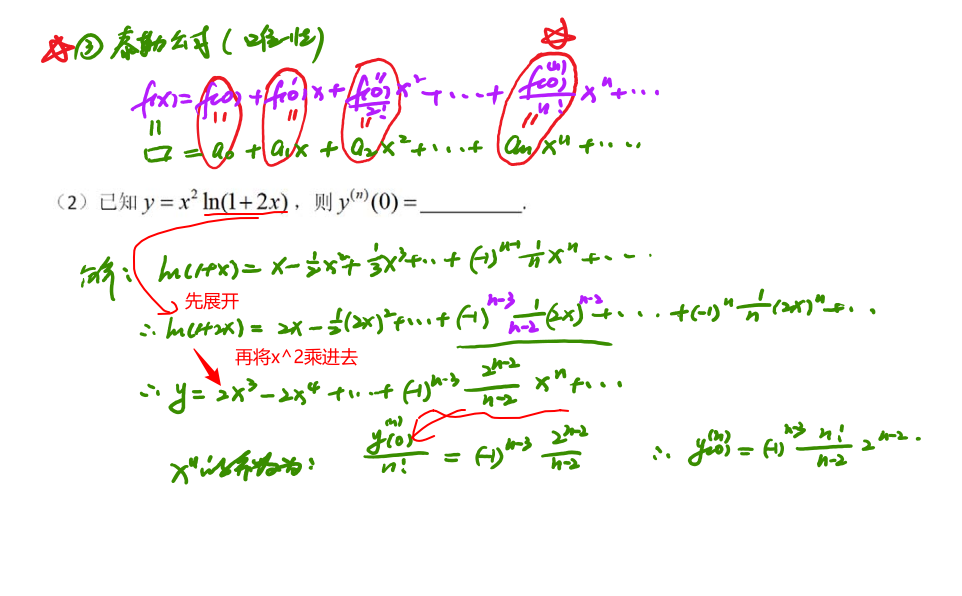 ③ 泰勒公式(唯一性)
f(x)=f(0)+f'(0)x+\frac{f''(0)}{2!}x²+⋯+\frac{f^{(n)}(0)}{n!}xⁿ+⋯
□=a₀+a₁x+a₂x²+⋯+aₙxⁿ+⋯
(2)已知 y=x² ln(1+2x),则 y^{(n)}(0)=________.
解:ln(1+x)=x-\frac{1}{2}x²+\frac{1}{3}x³+⋯+(-1)^{n-1}\frac{1}{n}xⁿ+⋯
先展开
∴ ln(1+2x)=2x-\frac{1}{2}(2x)²+⋯+(-1)^{n-3}\frac{1}{n-2}(2x)^{n-2}+⋯+(-1)^{n}\frac{1}{n}(2x)ⁿ+⋯
再将x^2乘进去
∴ y=2x³-2x⁴+⋯+(-1)^{n-3}\frac{2^{n-2}}{n-2}xⁿ+⋯
xⁿ的系数为: \frac{y^{(n)}(0)}{n!}=(-1)^{n-3}\frac{2^{n-2}}{n-2} ∴ y^{(n)}(0)=(-1)^{n-3}\frac{n!}{n-2}2^{n-2}.